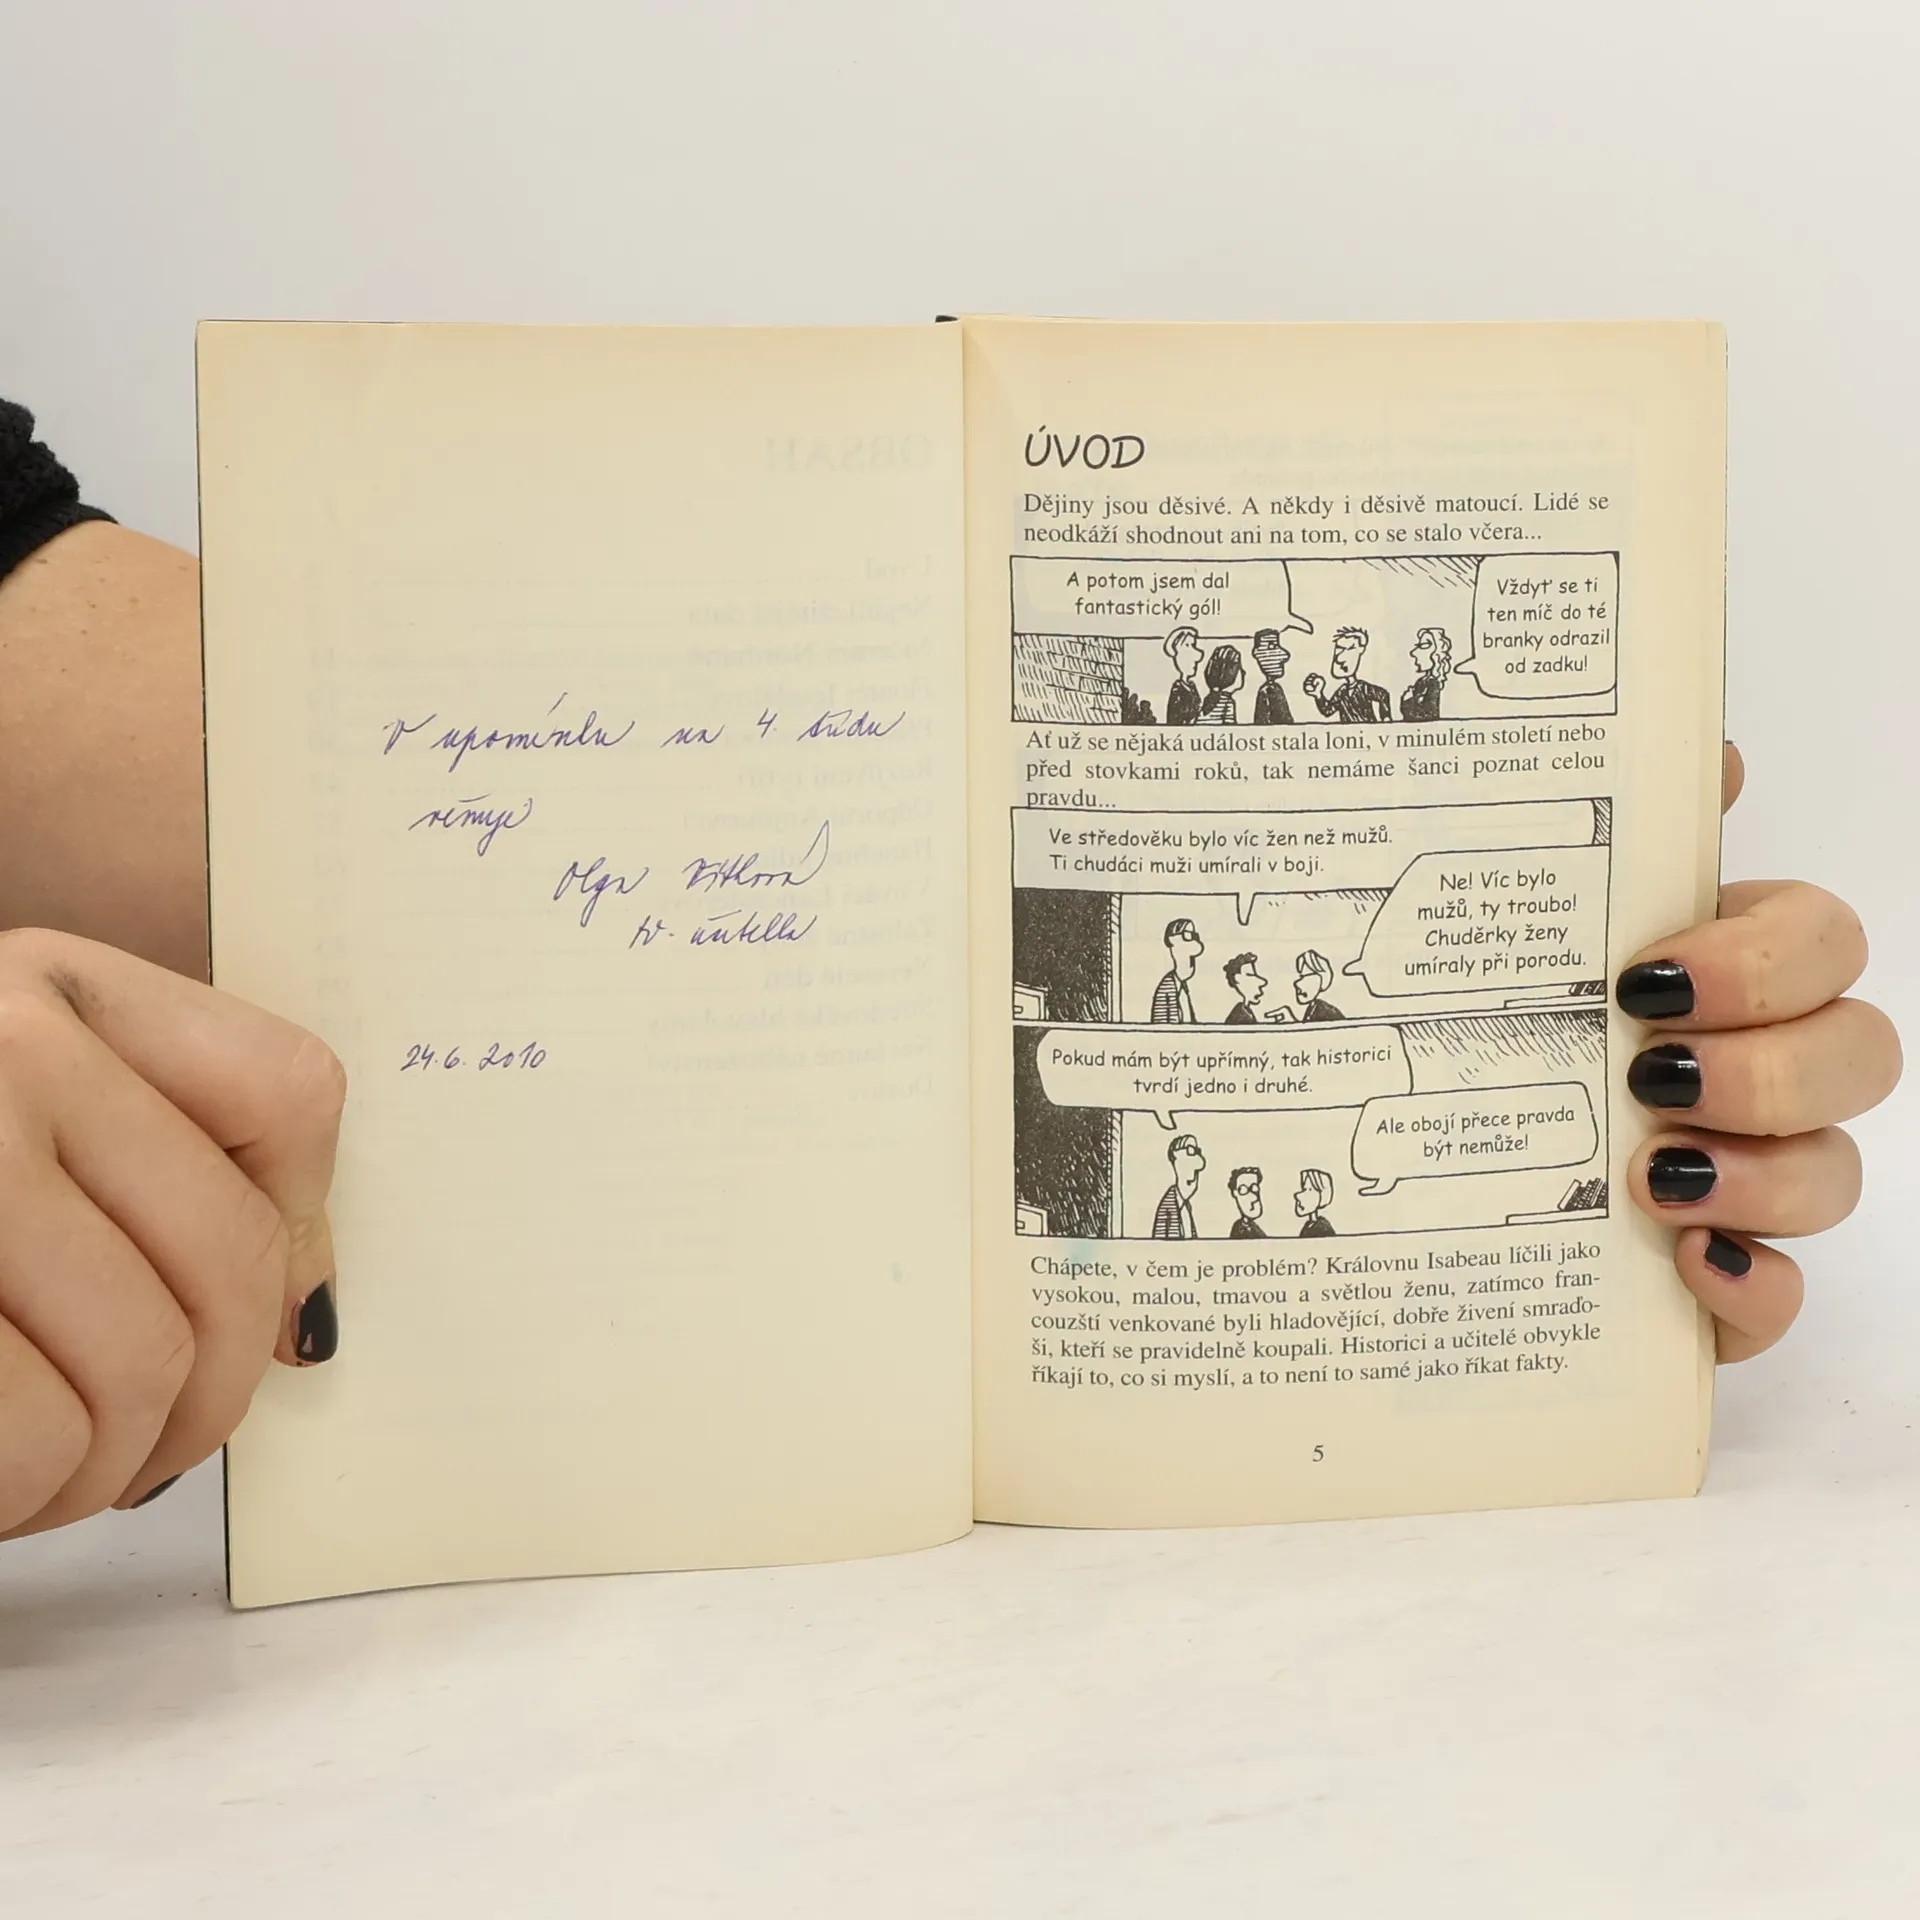 V upomínku na 4. třídu
věnuje
Olga Vítková
tř. učitelka
24.6. 2010
ÚVOD
Dějiny jsou děsivé. A někdy i děsivě matoucí. Lidé se
neodkáží shodnout ani na tom, co se stalo včera...
A potom jsem dal
fantastický gól!
Vždyť se ti
ten míč do té
branky odrazil
od zadku!
Ať už se nějaká událost stala loni, v minulém století nebo
před stovkami roků, tak nemáme šanci poznat celou
pravdu...
Ve středověku bylo víc žen než mužů.
Ti chudáci muži umírali v boji.
Ne! Víc bylo
mužů, ty troubo!
Chuděrky ženy
umíraly při porodu.
Pokud mám být upřímný, tak historici
tvrdí jedno i druhé.
Ale obojí přece pravda
být nemůže!
Chápete, v čem je problém? Královnu Isabeau líčili jako
vysokou, malou, tmavou a světlou ženu, zatímco fran-
couzští venkované byli hladovějící, dobře živení smraďo-
ši, kteří se pravidelně koupali. Historici a učitelé obvykle
říkají to, co si myslí, a to není to samé jako říkat fakty.
5